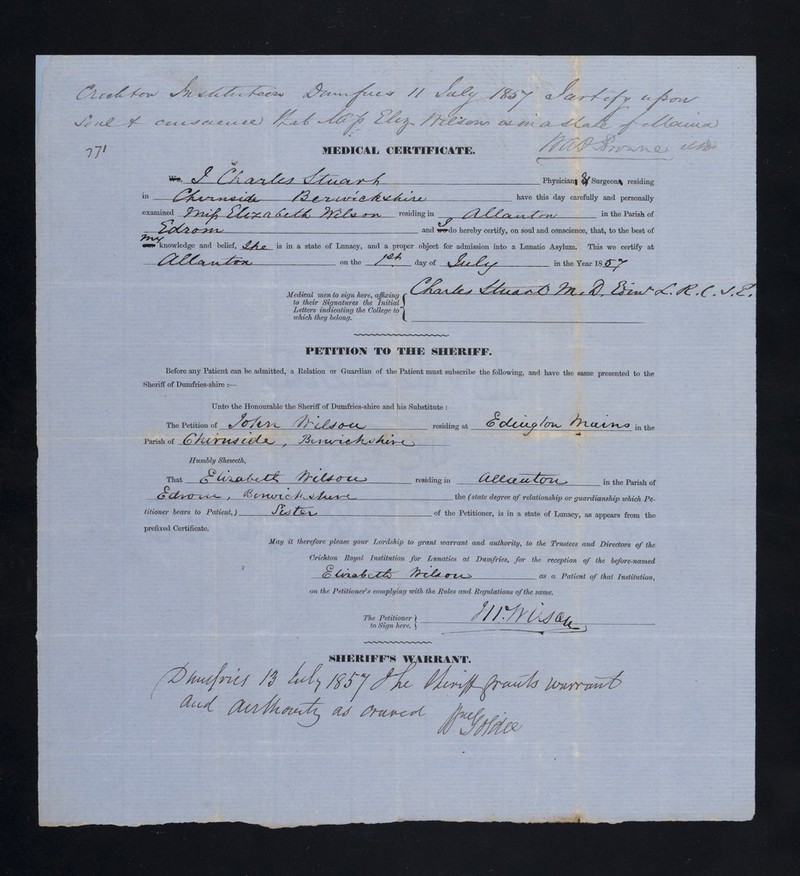 Crichton Institution Dumfries 11 July 1857 I certify upon
Soul & conscience that Miss Eliz. Wilson is in a state of Mania
771
WAF Browne MD
MEDICAL CERTIFICATE.
We, I Charles Stuart Physician & Surgeon, residing
in Chirnside Berwickshire have this day carefully and personally
examined Miss Elizabeth Wilson residing in Allanton in the Parish of
Edrom and we I do hereby certify, on soul and conscience, that, to the best of
my knowledge and belief, She is in a state of Lunacy, and a proper object for admission into a Lunatic Asylum. This we certify at
Allanton on the 1st day of July in the Year 1857
Medical men to sign here, affixing
to their Signatures the Initial
Letters indicating the College to
which they belong.
Charles Stuart M.D. Edinr L.R.C.S.E.
PETITION TO THE SHERIFF.
Before any Patient can be admitted, a Relation or Guardian of the Patient must subscribe the following, and have the same presented to the
Sheriff of Dumfries-shire :—
Unto the Honourable the Sheriff of Dumfries-shire and his Substitute :
The Petition of John Wilson residing at Edington Mains in the
Parish of Chirnside, Berwickshire
Humbly Sheweth,
That Elizabeth Wilson residing in Allanton in the Parish of
Edrom, Berwickshire the (state degree of relationship or guardianship which Pe-
titioner bears to Patient,) Sister of the Petitioner, is in a state of Lunacy, as appears from the
prefixed Certificate.
May it therefore please your Lordship to grant warrant and authority, to the Trustees and Directors of the
Crichton Royal Institution for Lunatics at Dumfries, for the reception of the before-named
Elizabeth Wilson as a Patient of that Institution,
on the Petitioner's complying with the Rules and Regulations of the same.
The Petitioner
to Sign here.
Wilson
SHERIFF'S WARRANT.
Dumfries 13 July 1857 The Sheriff grants warrant
and authority as craved Wm Goldie